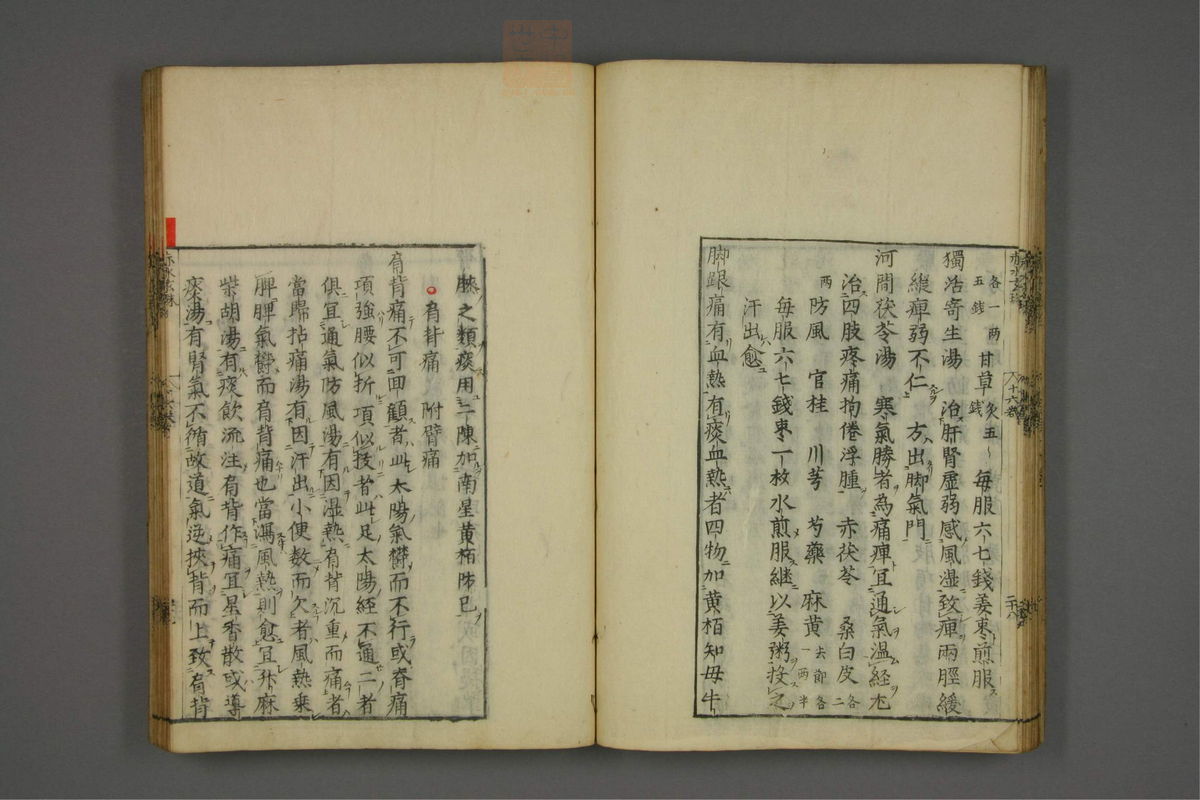 各一兩 五錢 甘草 炙五錢 每服六七錢姜枣煎服
獨活寄生湯 治肝腎虛弱感風湿致痺兩脛緩
縱痺弱不仁 方出脚氣門
河間茯苓湯 寒氣勝者為痛痺宜通氣温経尤
治四肢疼痛拘倦浮腫 赤茯苓 桑白皮 各二
兩 防風 官桂 川芎 芍藥 麻黄 去節各一兩半
每服六七錢枣一枚水煎服継以姜粥投之
汗出愈
脚跟痛有血熱有痰血熱者四物加黄栢知母牛
膝之類痰用二陳加南星黄栢防已
肩背痛 附臂痛
肩背痛不可回顧者此太陽氣鬱而不行或脊痛
項強腰似折項似拔者此足太陽経不通二者
俱宜通氣防風湯有因湿熱肩背沉重而痛者
當歸拈痛湯有因汗出小便数而欠者風熱乗
脾脾氣鬱而肩背痛也當瀉風熱則愈宜升麻
柴胡湯有痰飲流注肩背作痛宜星香散或導
痰湯有腎氣不循故道氣逆挾背而上致肩背
赤水玄珠
十六卷
二十八